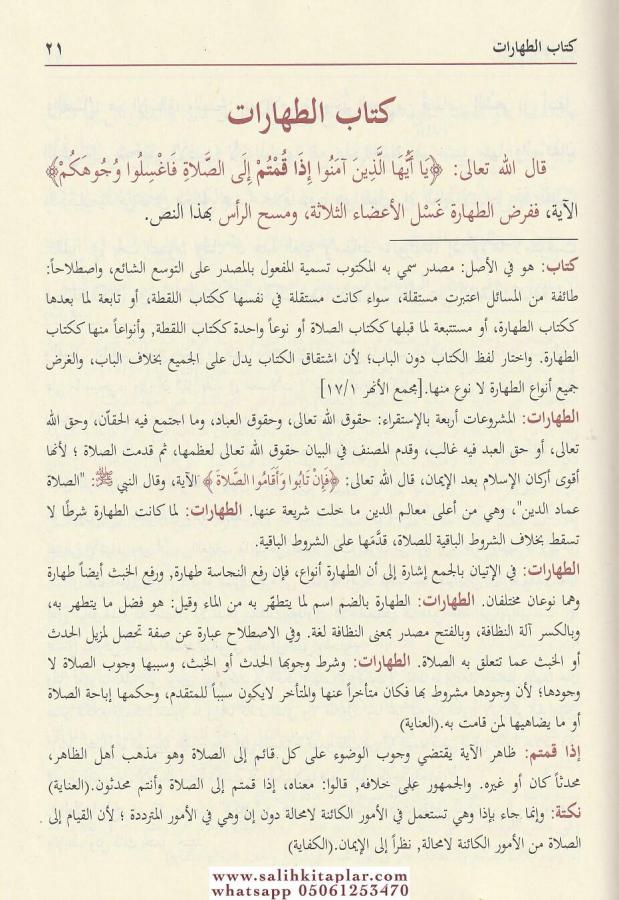 كتاب الطهارات ٢١
كتاب الطهارات
قال الله تعالى: ﴿يَا أَيُّهَا الَّذِينَ آمَنُوا إِذَا قُمْتُمْ إِلَى الصَّلاةِ فَاغْسِلُوا وُجُوهَكُمْ﴾
الآية، ففرض الطهارة غَسْل الأعضاء الثلاثة، ومسح الرأس بهذا النص.
كتاب: هو في الأصل: مصدر سمي به المكتوب تسمية المفعول بالمصدر على التوسع الشائع، واصطلاحاً:
طائفة من المسائل اعتبرت مستقلة، سواء كانت مستقلة في نفسها ككتاب اللقطة، أو تابعة لما بعدها
ككتاب الطهارة، أو مستتبعة لما قبلها ككتاب الصلاة أو نوعاً واحدة ككتاب اللقطة, وأنواعاً منها ككتاب
الطهارة. واختار لفظ الكتاب دون الباب؛ لأن اشتقاق الكتاب يدل على الجميع بخلاف الباب، والغرض
جميع أنواع الطهارة لا نوع منها.[مجمع الأنهر ١٧/١]
الطهارات: المشروعات أربعة بالإستقراء: حقوق الله تعالى، وحقوق العباد، وما اجتمع فيه الحقاّن، وحق الله
تعالى، أو حق العبد فيه غالب، وقدم المصنف في البيان حقوق الله تعالى لعظمها، ثم قدمت الصلاة ؛ لأنها
أقوى أركان الإسلام بعد الإيمان، قال الله تعالى: ﴿فَإِنْ تَابُوا وَأَقَامُوا الصَّلاةَ﴾ الآية، وقال النبي ﷺ: "الصلاة
عماد الدين"، وهي من أعلى معالم الدين ما خلت شريعة عنها. الطهارات: لما كانت الطهارة شرطًا لا
تسقط بخلاف الشروط الباقية للصلاة، قدَّمَها على الشروط الباقية.
الطهارات: في الإتيان بالجمع إشارة إلى أن الطهارة أنواع، فإن رفع النجاسة طهارة, ورفع الخبث أيضاً طهارة
وهما نوعان مختلفان. الطهارات: الطهارة بالضم اسم لما يتطهّر به من الماء وقيل: هو فضل ما يتطهر به،
وبالكسر آلة النظافة، وبالفتح مصدر بمعنى النظافة لغة. وفي الاصطلاح عبارة عن صفة تحصل لمزيل الحدث
أو الخبث عما تتعلق به الصلاة. الطهارات: وشرط وجوبها الحدث أو الخبث، وسببها وجوب الصلاة لا
وجودها؛ لأن وجودها مشروط بها فكان متأخراً عنها والمتأخر لايكون سبباً للمتقدم، وحكمها إباحة الصلاة
أو ما يضاهيها لمن قامت به.(العناية)
إذا قمتم: ظاهر الآية يقتضي وجوب الوضوء على كل قائم إلى الصلاة وهو مذهب أهل الظاهر،
محدثاً كان أو غيره. والجمهور على خلافه, قالوا: معناه، إذا قمتم إلى الصلاة وأنتم محدثون.(العناية)
نكتة: وإنما جاء بإذا وهي تستعمل في الأمور الكائنة لامحالة دون إن وهي في الأمور المترددة ؛ لأن القيام إلى
الصلاة من الأمور الكائنة لامحالة, نظراً إلى الإيمان.(الكفاية)
www.salihkitaplar.com
whatsapp 05061253470